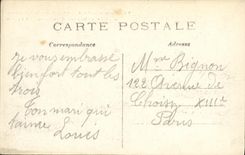 CARTE POSTALE
Correspondance
Adresse
Je vous embrasse
bien fort tout les
trois
Ton mari qui
t'aime
Louis
Mme Bignon
122 Avenue de
Choisy XIIIe
Paris